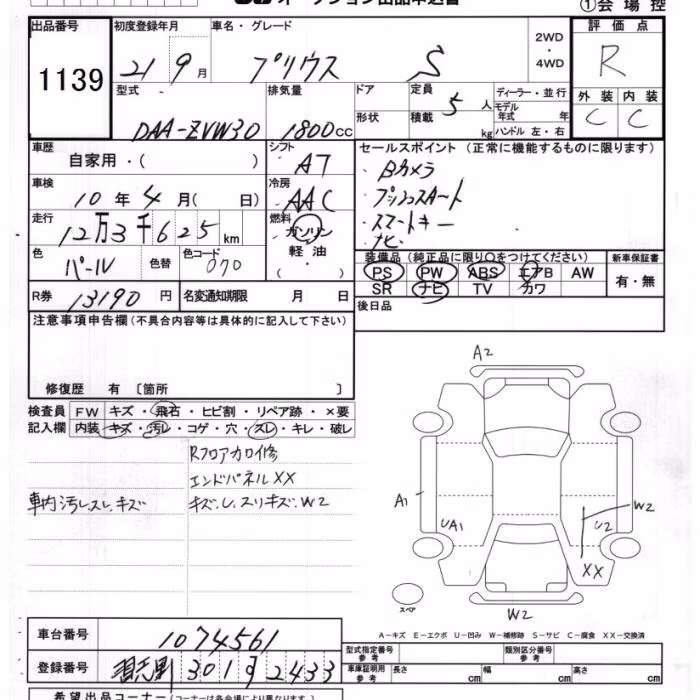 出品番号 初度登録年月 車名・グレード 2WD ・ 4WD 評価点
1139 21 9月 プリウス S R
型式 排気量 ドア 定員 5人 ディーラー・並行 外装 内装
DAA-ZVW30 1800cc 形状 積載 kg モデル年式 年 ハンドル 左・右 C C
車歴 自家用・( ) シフト AT セールスポイント (正常に機能するものに限ります)
車検 10年 4月( 日) 冷房 AAC ・Bカメラ
・プッシュスタート
走行 12万3千625km 燃料 ガソリン ・スマートキー
軽油 ・ナビ
色 パール 色替 色コード 070 ( ) 装備品 (純正品に限り○をつけてください) 新車保証書
PS PW ABS エアB AW 有・無
R券 13190円 名変通知期限 月 日 SR ナビ TV カワ
注意事項申告欄(不具合内容等は具体的に記入して下さい) 後日品
修復歴 有 〔箇所 〕
検査員 FW キズ・飛石・ヒビ割・リペア跡・×要
記入欄 内装 キズ・汚レ・コゲ・穴・スレ・キレ・破レ
Rフロアカロ修
エンドパネルXX
車内汚レスレ.キズ キズ.U.スリキズ.W2
A2
A1
UA1
U2
W2
XX
スペア
W2
A-キズ E-エクボ U-凹み W-補修跡 S-サビ C-腐食 XX-交換済
車台番号 1074561
型式指定番号 参考 類別区分番号 参考
登録番号 習志野 301 2433
車庫証明用 参考 長さ cm 幅 cm 高さ cm
希望出品コーナー(コーナーは各会場により異なります)